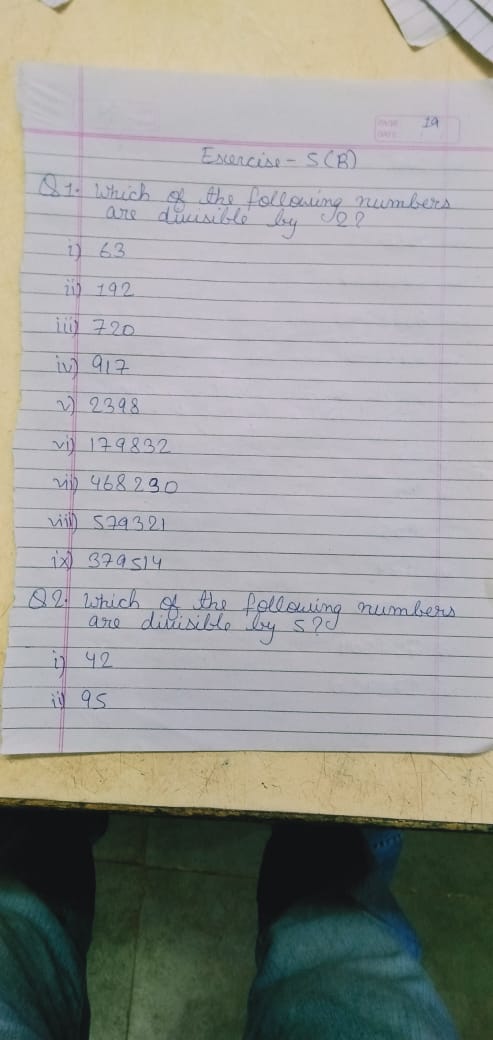 PAGE 19
DATE
Exercise - 5(B)
Q1. Which of the following numbers
are divisible by 2?
i) 63
ii) 192
iii) 720
iv) 917
v) 2398
vi) 179832
vii) 468290
viii) 579321
ix) 379514
Q2. Which of the following numbers
are divisible by 5?
i) 42
ii) 95